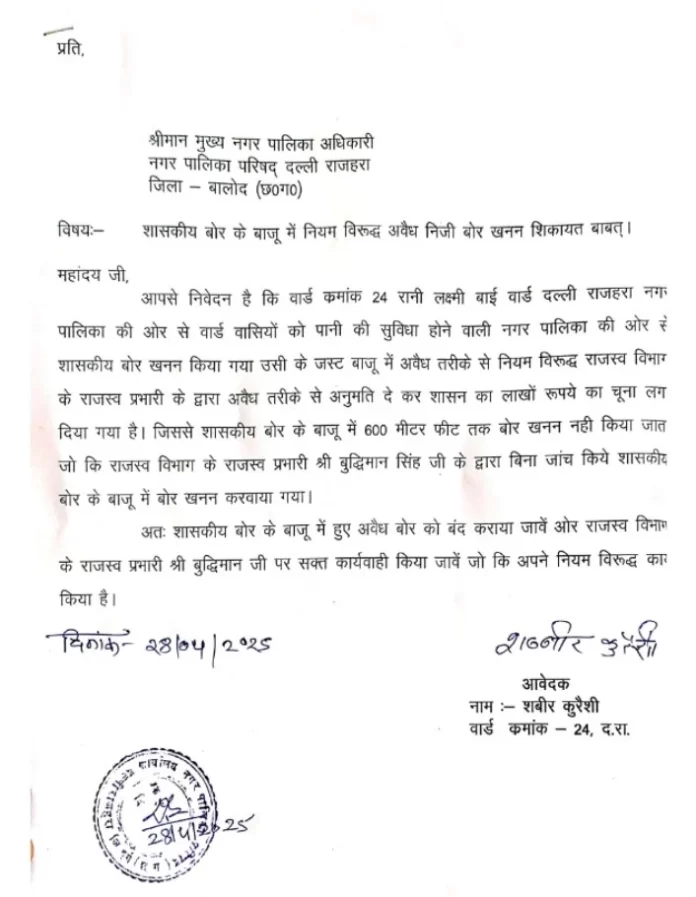 प्रति,
श्रीमान मुख्य नगर पालिका अधिकारी
नगर पालिका परिषद् दल्ली राजहरा
जिला – बालोद (छ0ग0)
विषयः– शासकीय बोर के बाजू में नियम विरूद्ध अवैध निजी बोर खनन शिकायत बाबत्।
महांदय जी,
आपसे निवेदन है कि वार्ड कमांक 24 रानी लक्ष्मी बाई वार्ड दल्ली राजहरा नगर
पालिका की ओर से वार्ड वासियों को पानी की सुविधा होने वाली नगर पालिका की ओर से
शासकीय बोर खनन किया गया उसी के जस्ट बाजू में अवैध तरीके से नियम विरूद्ध राजस्व विभाग
के राजस्व प्रभारी के द्वारा अवैध तरीके से अनुमति दे कर शासन का लाखों रूपये का चूना लग
दिया गया है। जिससे शासकीय बोर के बाजू में 600 मीटर फीट तक बोर खनन नही किया जात
जो कि राजस्व विभाग के राजस्व प्रभारी श्री बुद्धिमान सिंह जी के द्वारा बिना जांच किये शासकीय
बोर के बाजू में बोर खनन करवाया गया।
अतः शासकीय बोर के बाजू में हुए अवैध बोर को बंद कराया जावें ओर राजस्व विभाग
के राजस्व प्रभारी श्री बुद्धिमान जी पर सक्त कार्यवाही किया जावें जो कि अपने नियम विरूद्ध का
किया है।
दिनांक- 28/04/2025
शब्बीर कुरैशी
आवेदक
नाम :– शबीर कुरैशी
वार्ड कमांक – 24, द.रा.
28/4/2025